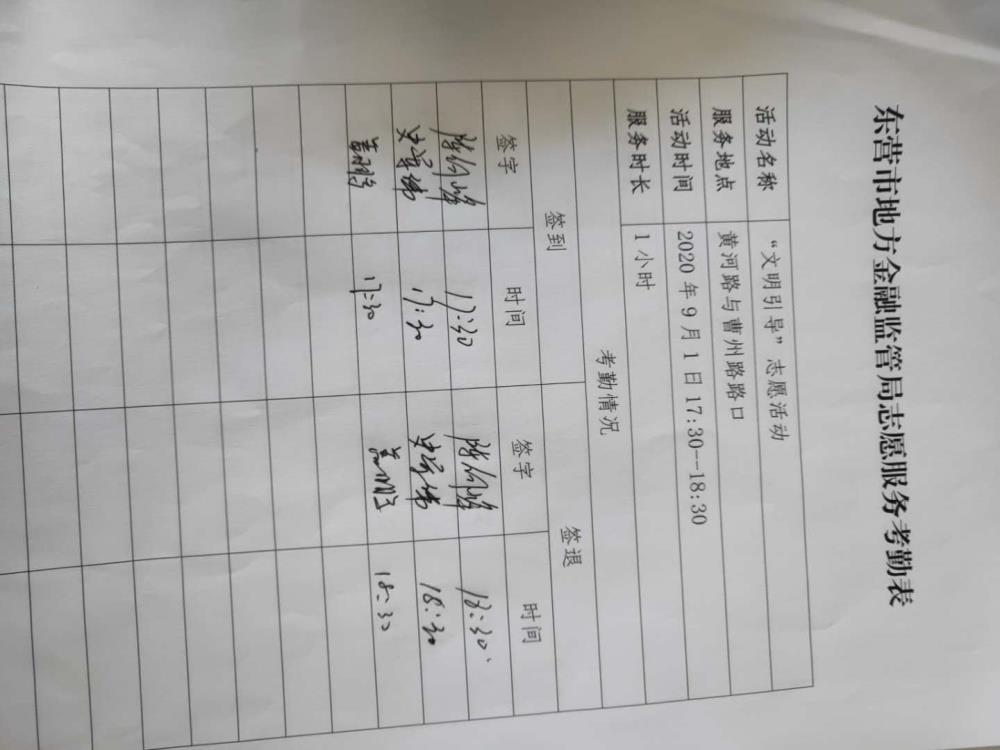 东营市地方金融监管局志愿服务考勤表
活动名称 “文明引导”志愿活动
服务地点 黄河路与曹州路路口
活动时间 2020年9月1日17:30--18:30
服务时长 1小时
考勤情况
签到 签退
签字 时间 签字 时间
17:30 18:30
17:30 18:30
17:30 18:30